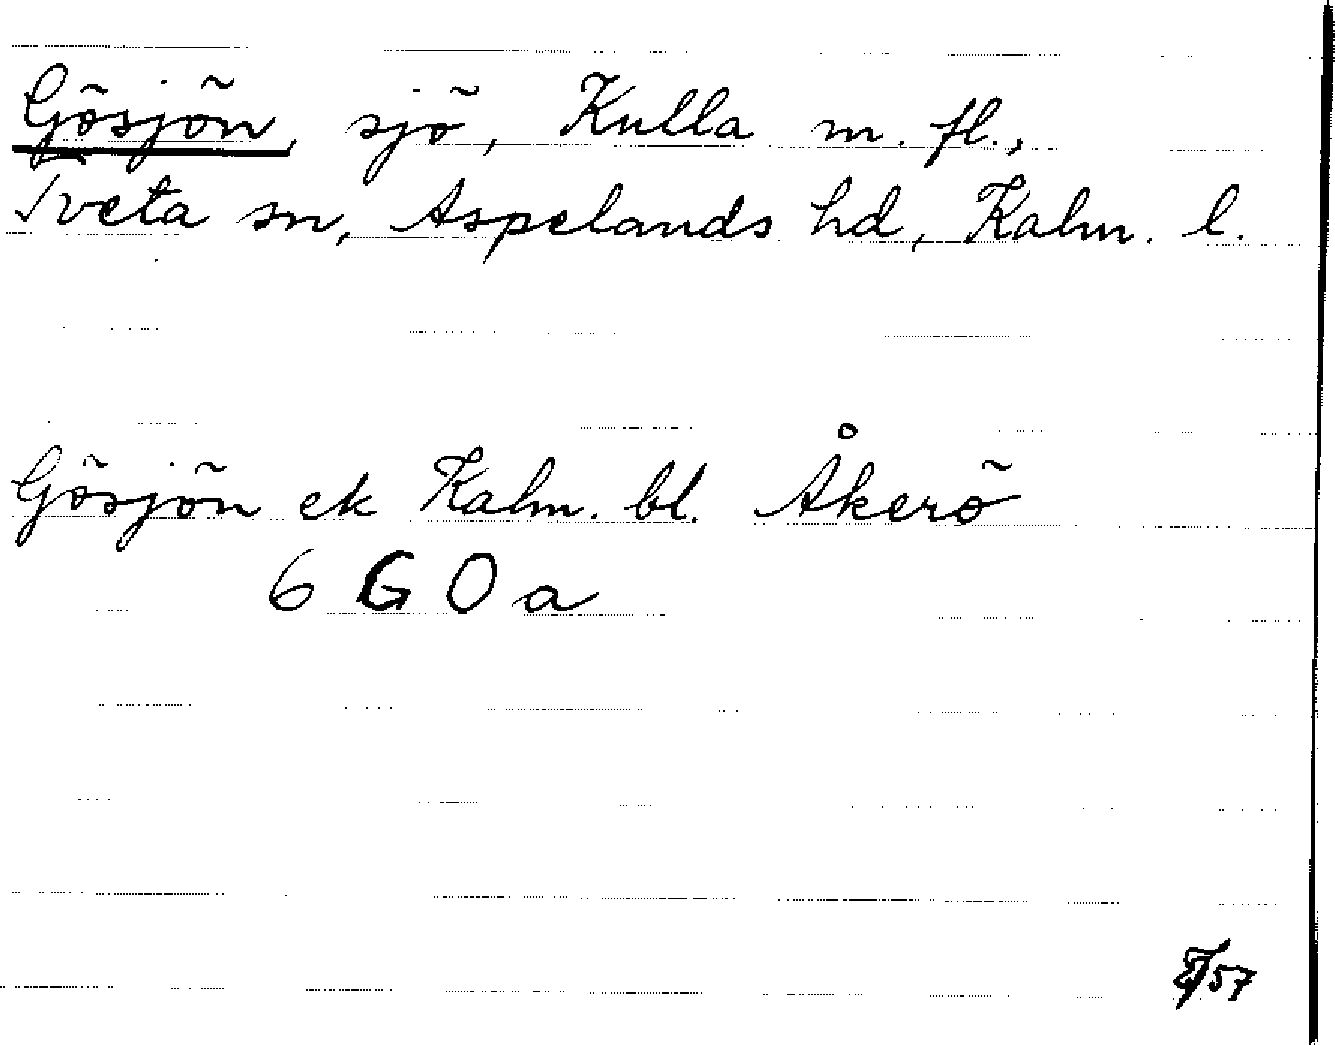 Gösjön, sjö, Kulla m. fl.,
Tveta sn, Aspelands hd, Kalm. l.
Gösjön ek Kalm. bl. Åkerö
6 G 0 a